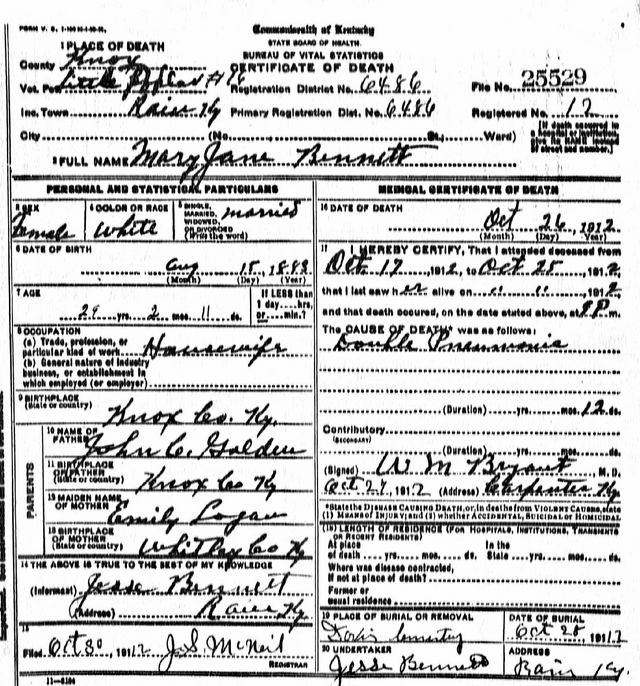 Commonwealth of Kentucky
STATE BOARD OF HEALTH
BUREAU OF VITAL STATISTICS
CERTIFICATE OF DEATH
1 PLACE OF DEATH
County Knox
Vot. Pct. Little Poplar # 16 Registration District No. 6486 File No. 25529
Inc. Town Rain Ky Primary Registration Dist. No. 6486 Registered No. 12
City (No. St., Ward) [If death occurred in a hospital or institution, give its NAME instead of street and number.]
2 FULL NAME Mary Jane Bennett
PERSONAL AND STATISTICAL PARTICULARS
3 SEX Female
4 COLOR OR RACE White
5 SINGLE, MARRIED, WIDOWED, OR DIVORCED (Write the word) married
6 DATE OF BIRTH
Aug 15, 1883
(Month) (Day) (Year)
7 AGE
29 yrs. 2 mos. 11 ds.
If LESS than 1 day....hrs. or....min.?
8 OCCUPATION
(a) Trade, profession, or particular kind of work Housewife
(b) General nature of industry business, or establishment in which employed (or employer)
9 BIRTHPLACE
(State or country) Knox Co. Ky.
PARENTS
10 NAME OF FATHER John C. Golden
11 BIRTHPLACE OF FATHER
(State or country) Knox Co Ky
12 MAIDEN NAME OF MOTHER Emily Logan
13 BIRTHPLACE OF MOTHER
(State or country) Whitley Co Ky
14 THE ABOVE IS TRUE TO THE BEST OF MY KNOWLEDGE
(Informant) Jesse Bennett
(Address) Rain Ky.
15
Filed Oct 30, 1912 J. S. McNeil
REGISTRAR
11-6184
MEDICAL CERTIFICATE OF DEATH
16 DATE OF DEATH
Oct 26, 1912
(Month) (Day) (Year)
17 I HEREBY CERTIFY, That I attended deceased from
Oct 17, 1912, to Oct 25, 1912,
that I last saw her alive on " ", 1912,
and that death occured, on the date stated above, at 8 P. m.
The CAUSE OF DEATH* was as follows:
Double Pneumonia
(Duration) yrs. mos. 12 ds.
Contributory
(SECONDARY)
(Duration) yrs. mos. ds.
(Signed) W. M. Bryant M. D.
Oct. 27, 1912 (Address) Carpenter Ky.
*State the DISEASE CAUSING DEATH, or, in deaths from VIOLENT CAUSES, state (1) MEANS OF INJURY; and (2) whether ACCIDENTAL, SUICIDAL or HOMICIDAL
(18) LENGTH OF RESIDENCE (FOR HOSPITALS, INSTITUTIONS, TRANSIENTS OR RECENT RESIDENTS)
At place of death yrs. mos. ds. In the State yrs. mos. ds.
Where was disease contracted, if not at place of death?
Former or usual residence
19 PLACE OF BURIAL OR REMOVAL
DATE OF BURIAL
Cemetery Oct 28, 1912
20 UNDERTAKER
ADDRESS
Jesse Bennett Rain Ky.